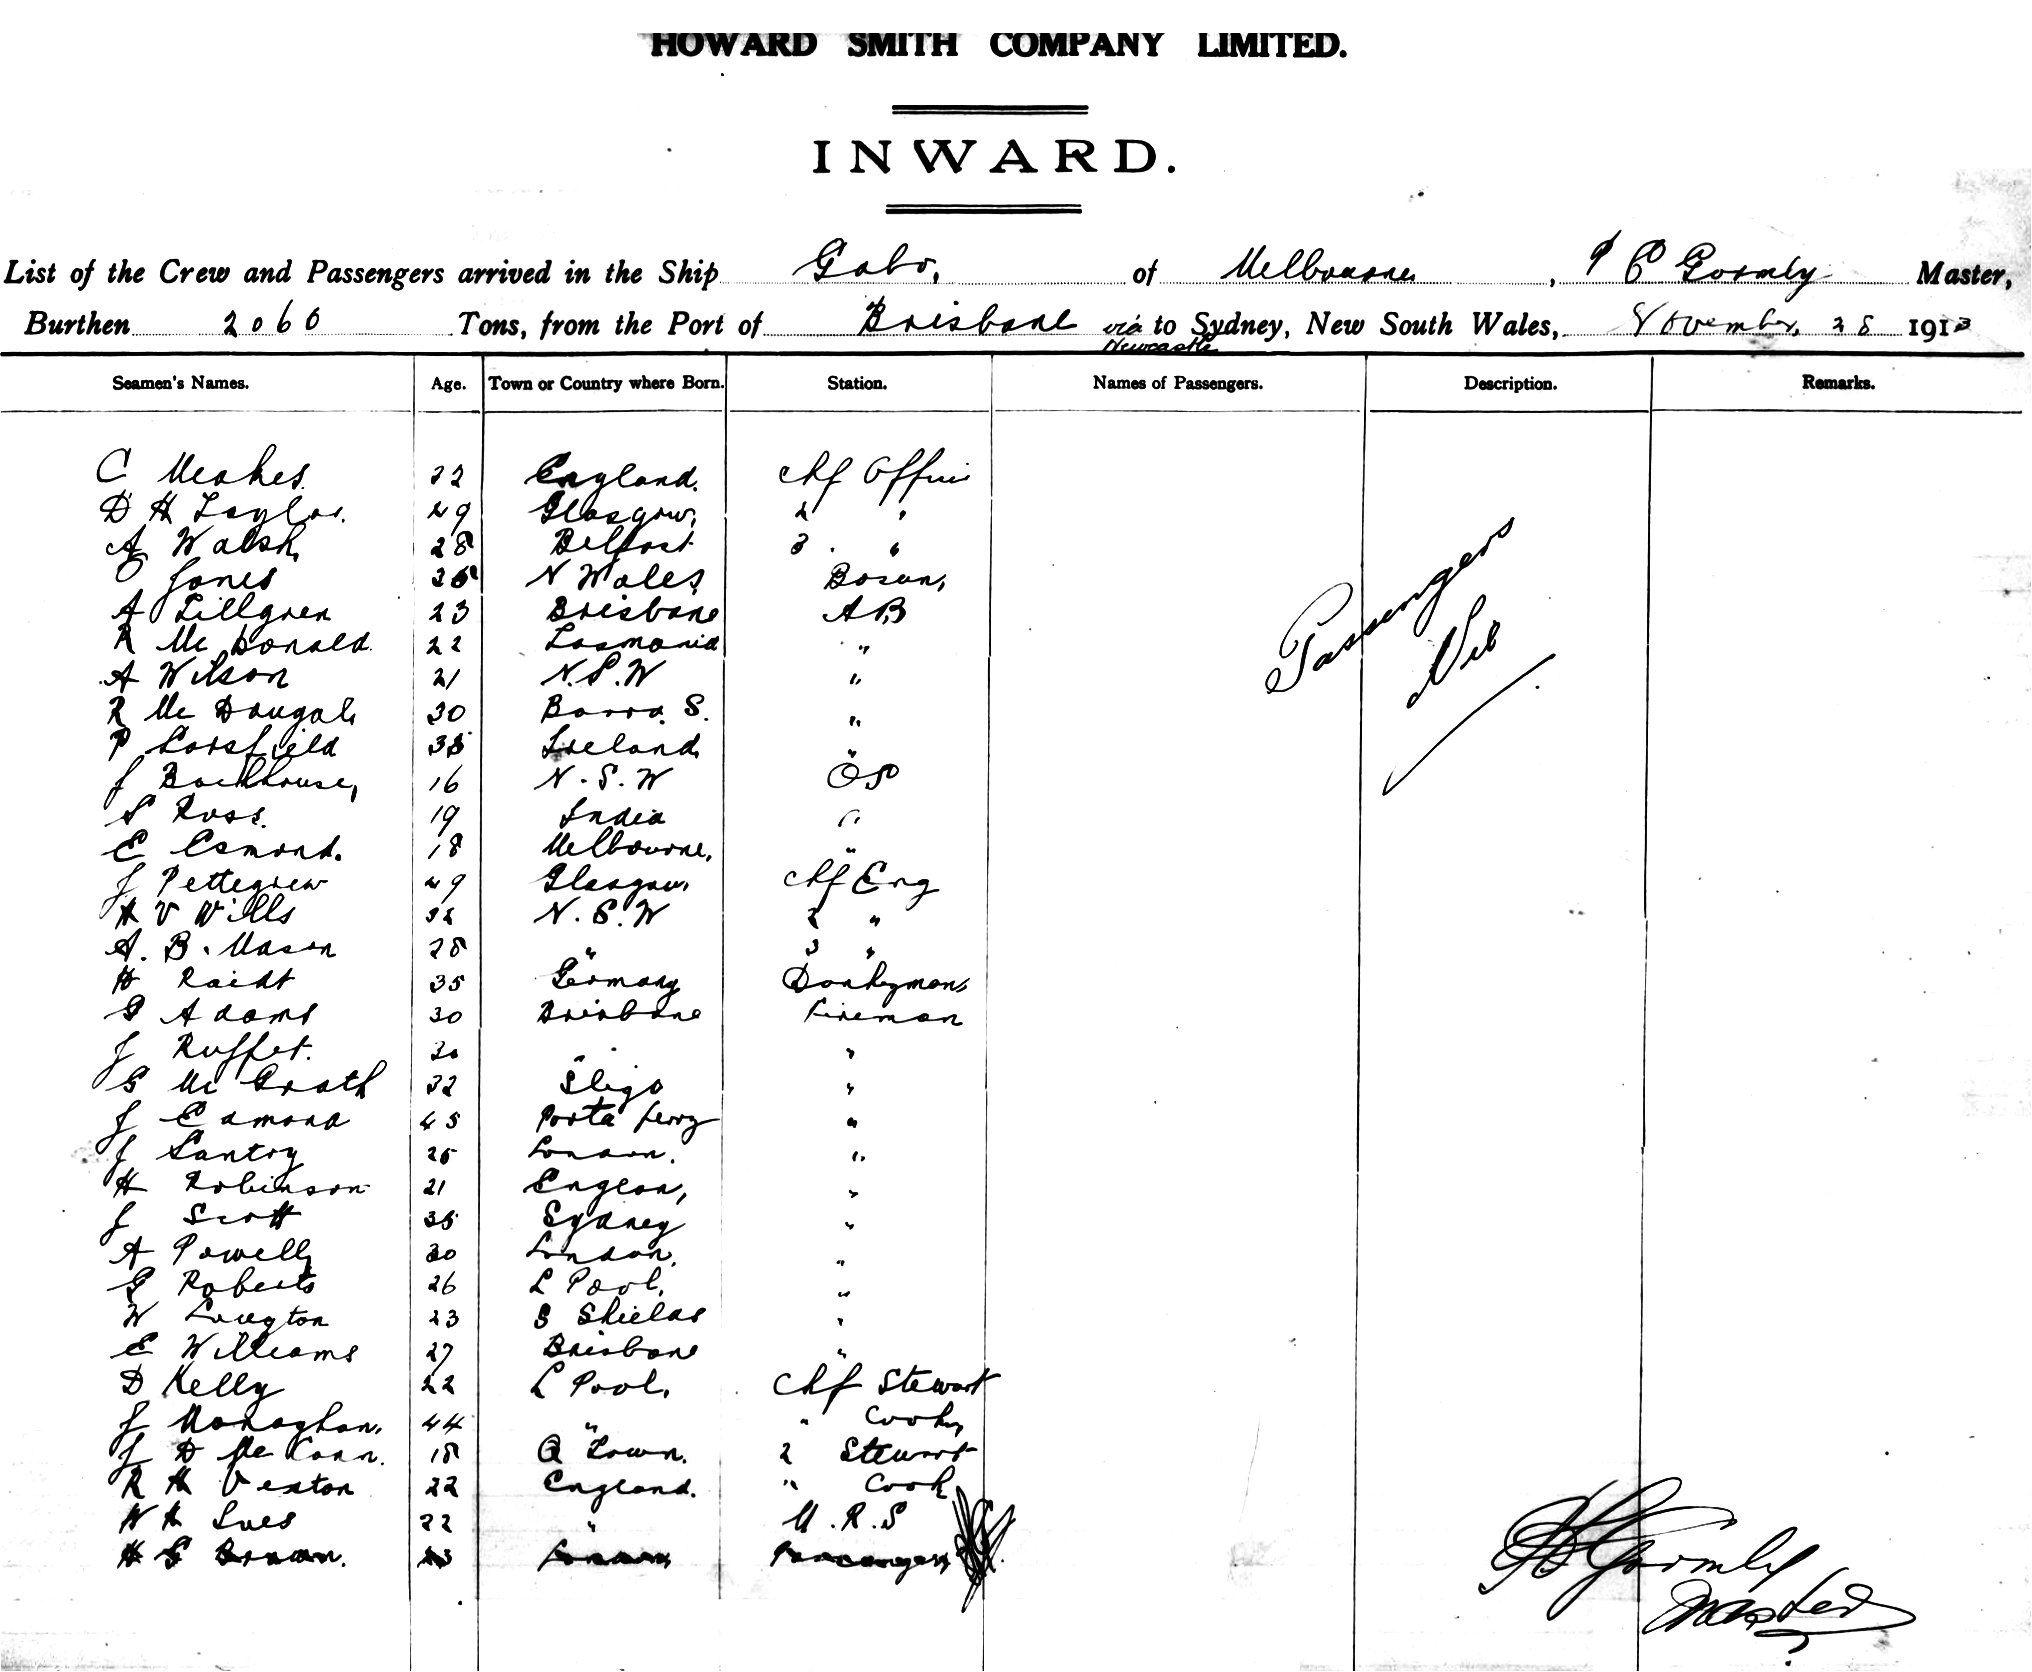 HOWARD SMITH COMPANY LIMITED.
INWARD.
List of the Crew and Passengers arrived in the Ship Gabo, of Melbourne, P C Gormly Master,
Burthen 2060 Tons, from the Port of Brisbane via Newcastle to Sydney, New South Wales, November 28 1913
Seamen's Names. Age. Town or Country where Born. Station. Names of Passengers. Description. Remarks.
C Meakes. 22 England. Chf Officer
D H Taylor. 49 Glasgow, 2 "
A Walsh, 28 Belfast 3 . "
Jones N Wales, Bosun,
A Lillgren 23 Brisbane AB
R Mc Donald. 22 Tasmania "
A Wilson 21 N.S.W "
R Mc Dougal, 30 Barra. S. "
P Corsfield 38 Ireland, "
J Backhouse, 16 N.S.W OS
S Ross. 19 India "
E Esmond. 18 Melbourne, "
J Pettegrew 49 Glasgow, Chf Eng
H V Wills 32 N.S.W 2 "
A. B. Mason 28 " 3 "
H Raidt 35 Germany Donkeyman,
G Adams 30 Brisbane Fireman
J Ruffet. 30 " "
G Mc Grath 32 Sligo "
J Edmond 45 Porta ferry "
J Santry 25 London. "
H Robinson 21 "
J Scott 35 Sydney "
A Powell, 30 London, "
G Roberts 26 L Pool, "
W Longton 23 S Shields "
E Williams 27 Brisbane "
D Kelly 22 L Pool, Chf Stewart
J Monaghan, 44 " " Cook,
J D Mc Cann. 18 Q Town. 2 Stewart
R H Vexton 22 England. " Cook
W H Ives 22 " M.R.S
H G Brown. 23 London, Passenger,
Passengers
Nil
P C Gormly
Master